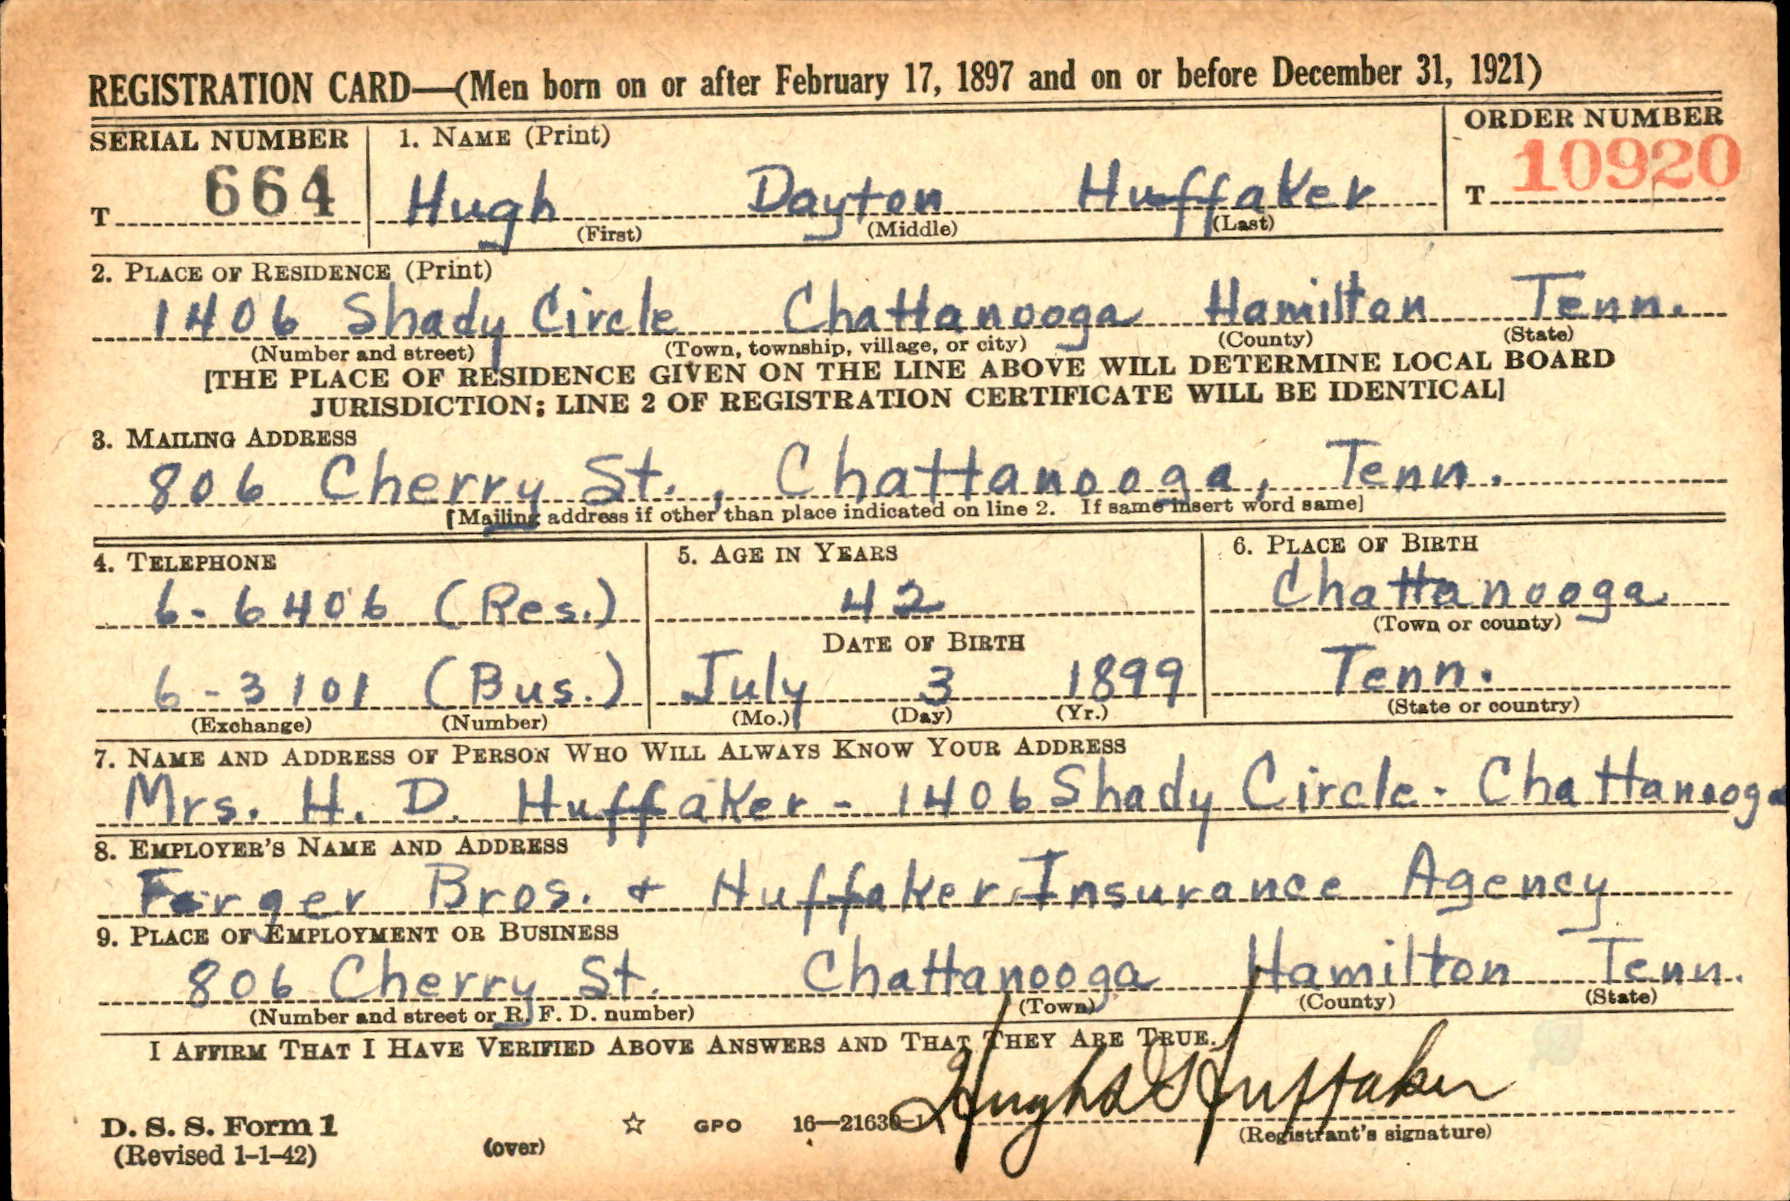 REGISTRATION CARD—(Men born on or after February 17, 1897 and on or before December 31, 1921)
SERIAL NUMBER 1. NAME (Print) ORDER NUMBER
T 664 Hugh Dayton Huffaker T 10920
(First) (Middle) (Last)
2. PLACE OF RESIDENCE (Print)
1406 Shady Circle Chattanooga Hamilton Tenn.
(Number and street) (Town, township, village, or city) (County) (State)
[THE PLACE OF RESIDENCE GIVEN ON THE LINE ABOVE WILL DETERMINE LOCAL BOARD
JURISDICTION; LINE 2 OF REGISTRATION CERTIFICATE WILL BE IDENTICAL]
3. MAILING ADDRESS
806 Cherry St., Chattanooga, Tenn.
[Mailing address if other than place indicated on line 2. If same insert word same]
4. TELEPHONE 5. AGE IN YEARS 6. PLACE OF BIRTH
6-6406 (Res.) 42 Chattanooga
(Town or county)
DATE OF BIRTH
6-3101 (Bus.) July 3 1899 Tenn.
(Exchange) (Number) (Mo.) (Day) (Yr.) (State or country)
7. NAME AND ADDRESS OF PERSON WHO WILL ALWAYS KNOW YOUR ADDRESS
Mrs. H. D. Huffaker - 1406 Shady Circle - Chattanooga
8. EMPLOYER'S NAME AND ADDRESS
Bros. + Huffaker Insurance Agency
9. PLACE OF EMPLOYMENT OR BUSINESS
806 Cherry St. Chattanooga Hamilton Tenn.
(Number and street or R. F. D. number) (Town) (County) (State)
I AFFIRM THAT I HAVE VERIFIED ABOVE ANSWERS AND THAT THEY ARE TRUE.
Hugh D Huffaker
D. S. S. Form 1 ☆ GPO 16—21630-1 (Registrant's signature)
(Revised 1-1-42) (over)